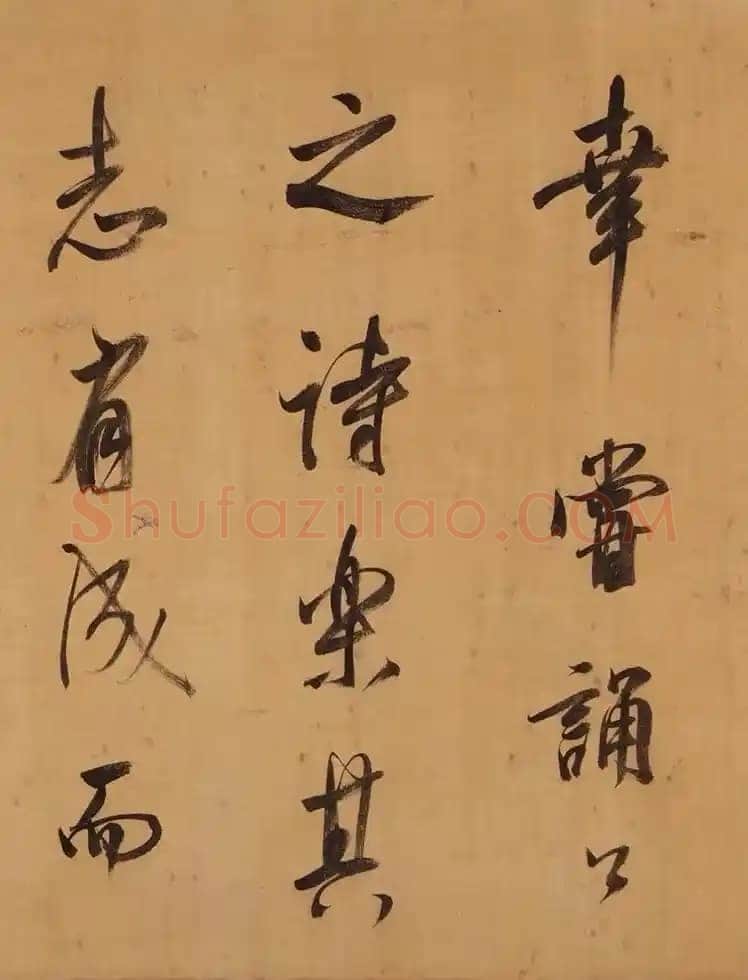 幸嘗誦公
之詩樂其
志有成而
Shufaziliao.COM